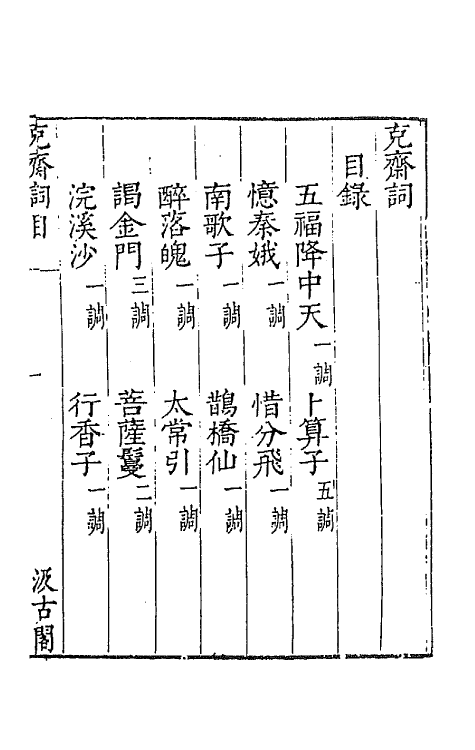 克齋詞
目錄
五福降中天一調 卜算子五調
憶秦娥一調 惜分飛一調
南歌子一調 鵲橋仙一調
醉落魄一調 太常引一調
謁金門三調 菩薩鬘二調
浣溪沙一調 行香子一調
克齋詞目 一 汲古閣